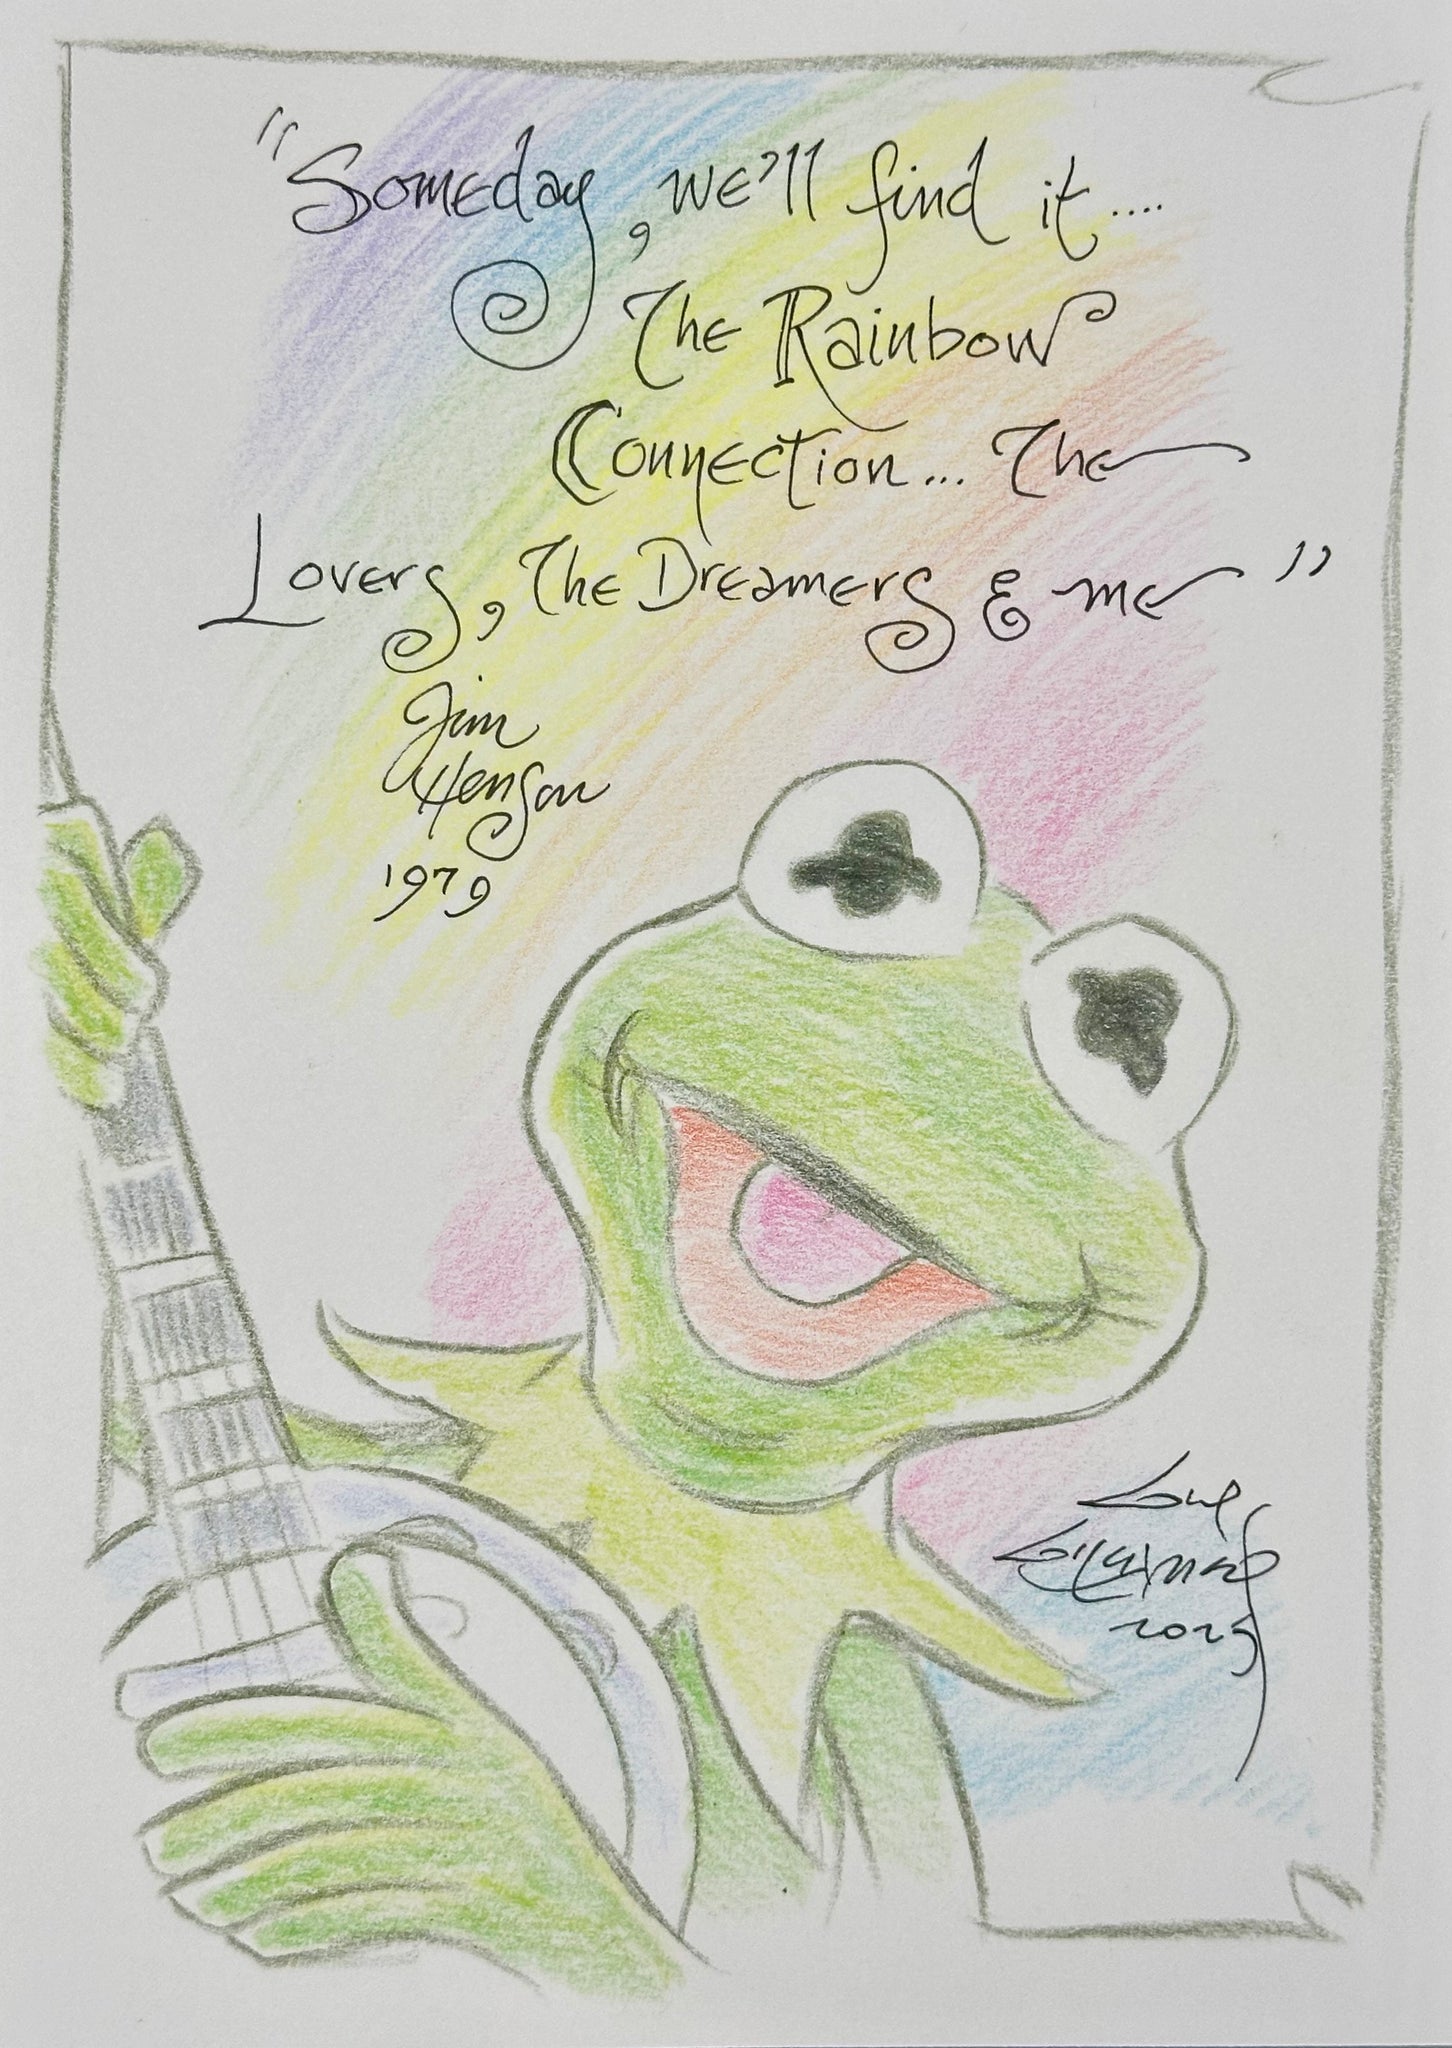 "Someday, we'll find it....
The Rainbow
Connection... The
Lovers, The Dreamers & me"
Jim
Henson
1979
2025